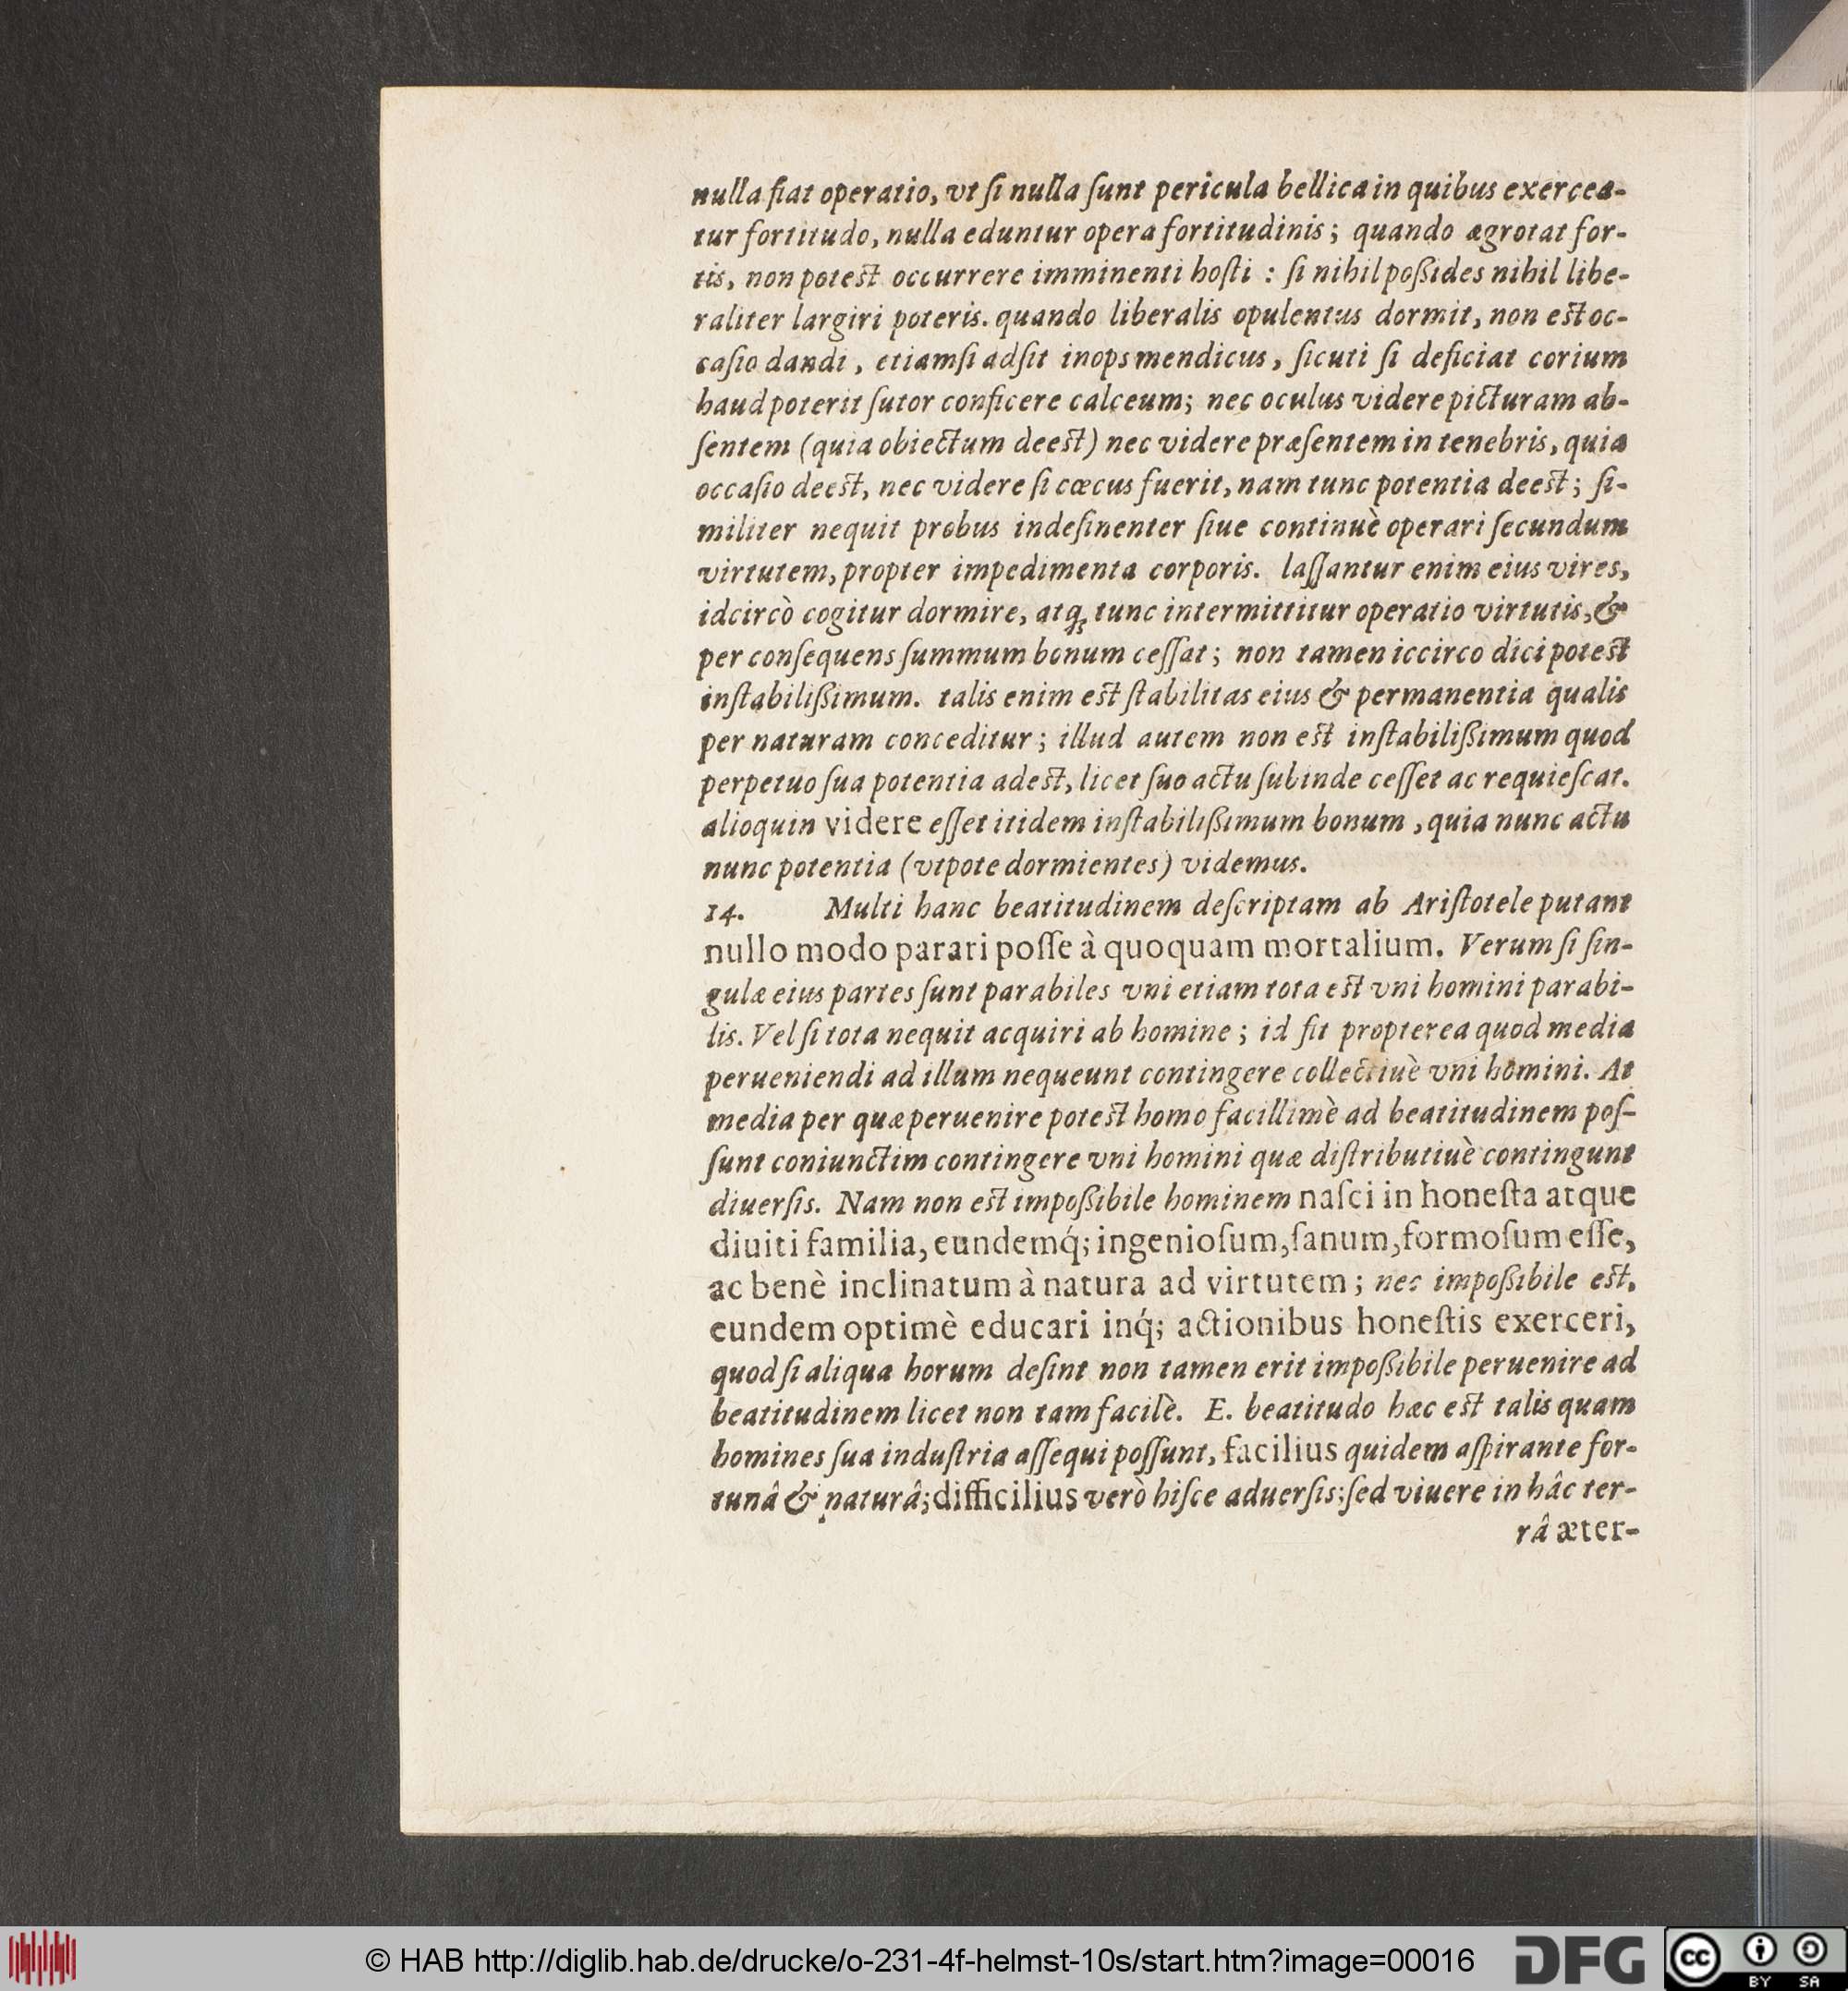 nulla fiat operatio, vt ſi nulla ſunt pericula bellica in quibus exercea-
tur fortitudo, nulla eduntur opera fortitudinis; quando ægrotat for-
tis, non poteſt occurrere imminenti hoſti : ſi nihil poßides nihil libe-
raliter largiri poteris. quando liberalis opulentus dormit, non eſt oc-
caſio dandi, etiamſi adſit inops mendicus, ſicuti ſi deficiat corium
haud poterit ſutor conficere calceum; nec oculus videre picturam ab-
ſentem (quia obiectum deeſt) nec videre præſentem in tenebris, quia
occaſio deeſt, nec videre ſi cœcus fuerit, nam tunc potentia deeſt; ſi-
militer nequit probus indeſinenter ſiue continuè operari ſecundum
virtutem, propter impedimenta corporis. laſſantur enim eius vires,
idcircò cogitur dormire, atq; tunc intermittitur operatio virtutis, &
per conſequens ſummum bonum ceſſat; non tamen iccirco dici poteſt
inſtabilißimum. talis enim eſt ſtabilitas eius & permanentia qualis
per naturam conceditur; illud autem non eſt inſtabilißimum quod
perpetuo ſua potentia adeſt, licet ſuo actu ſubinde ceſſet ac requieſcat.
alioquin videre eſſet itidem inſtabilißimum bonum, quia nunc actu
nunc potentia (vtpote dormientes) videmus.
14. Multi hanc beatitudinem deſcriptam ab Ariſtotele putant
nullo modo parari poſſe à quoquam mortalium. Verum ſi ſin-
gulæ eius partes ſunt parabiles vni etiam tota eſt vni homini parabi-
lis. Vel ſi tota nequit acquiri ab homine; id fit propterea quod media
perueniendi ad illum nequeunt contingere collectiuè vni homini. At
media per quæ peruenire poteſt homo facillimè ad beatitudinem poſ-
ſunt coniunctim contingere vni homini quæ diſtributiuè contingunt
diuerſis. Nam non eſt impoßibile hominem naſci in honeſta atque
diuiti familia, eundemq́; ingenioſum, ſanum, formoſum eſſe,
ac benè inclinatum à natura ad virtutem; nec impoßibile eſt,
eundem optimè educari inq́; actionibus honeſtis exerceri,
quod ſi aliqua horum deſint non tamen erit impoßibile peruenire ad
beatitudinem licet non tam facilè. E. beatitudo hæc eſt talis quam
homines ſua induſtria aſſequi poſſunt, facilius quidem aſpirante for-
tunâ & naturâ; difficilius verò hiſce aduerſis; ſed viuere in hâc ter-
râ æter-
© HAB http://diglib.hab.de/drucke/o-231-4f-helmst-10s/start.htm?image=00016
DFG
cc
BY SA